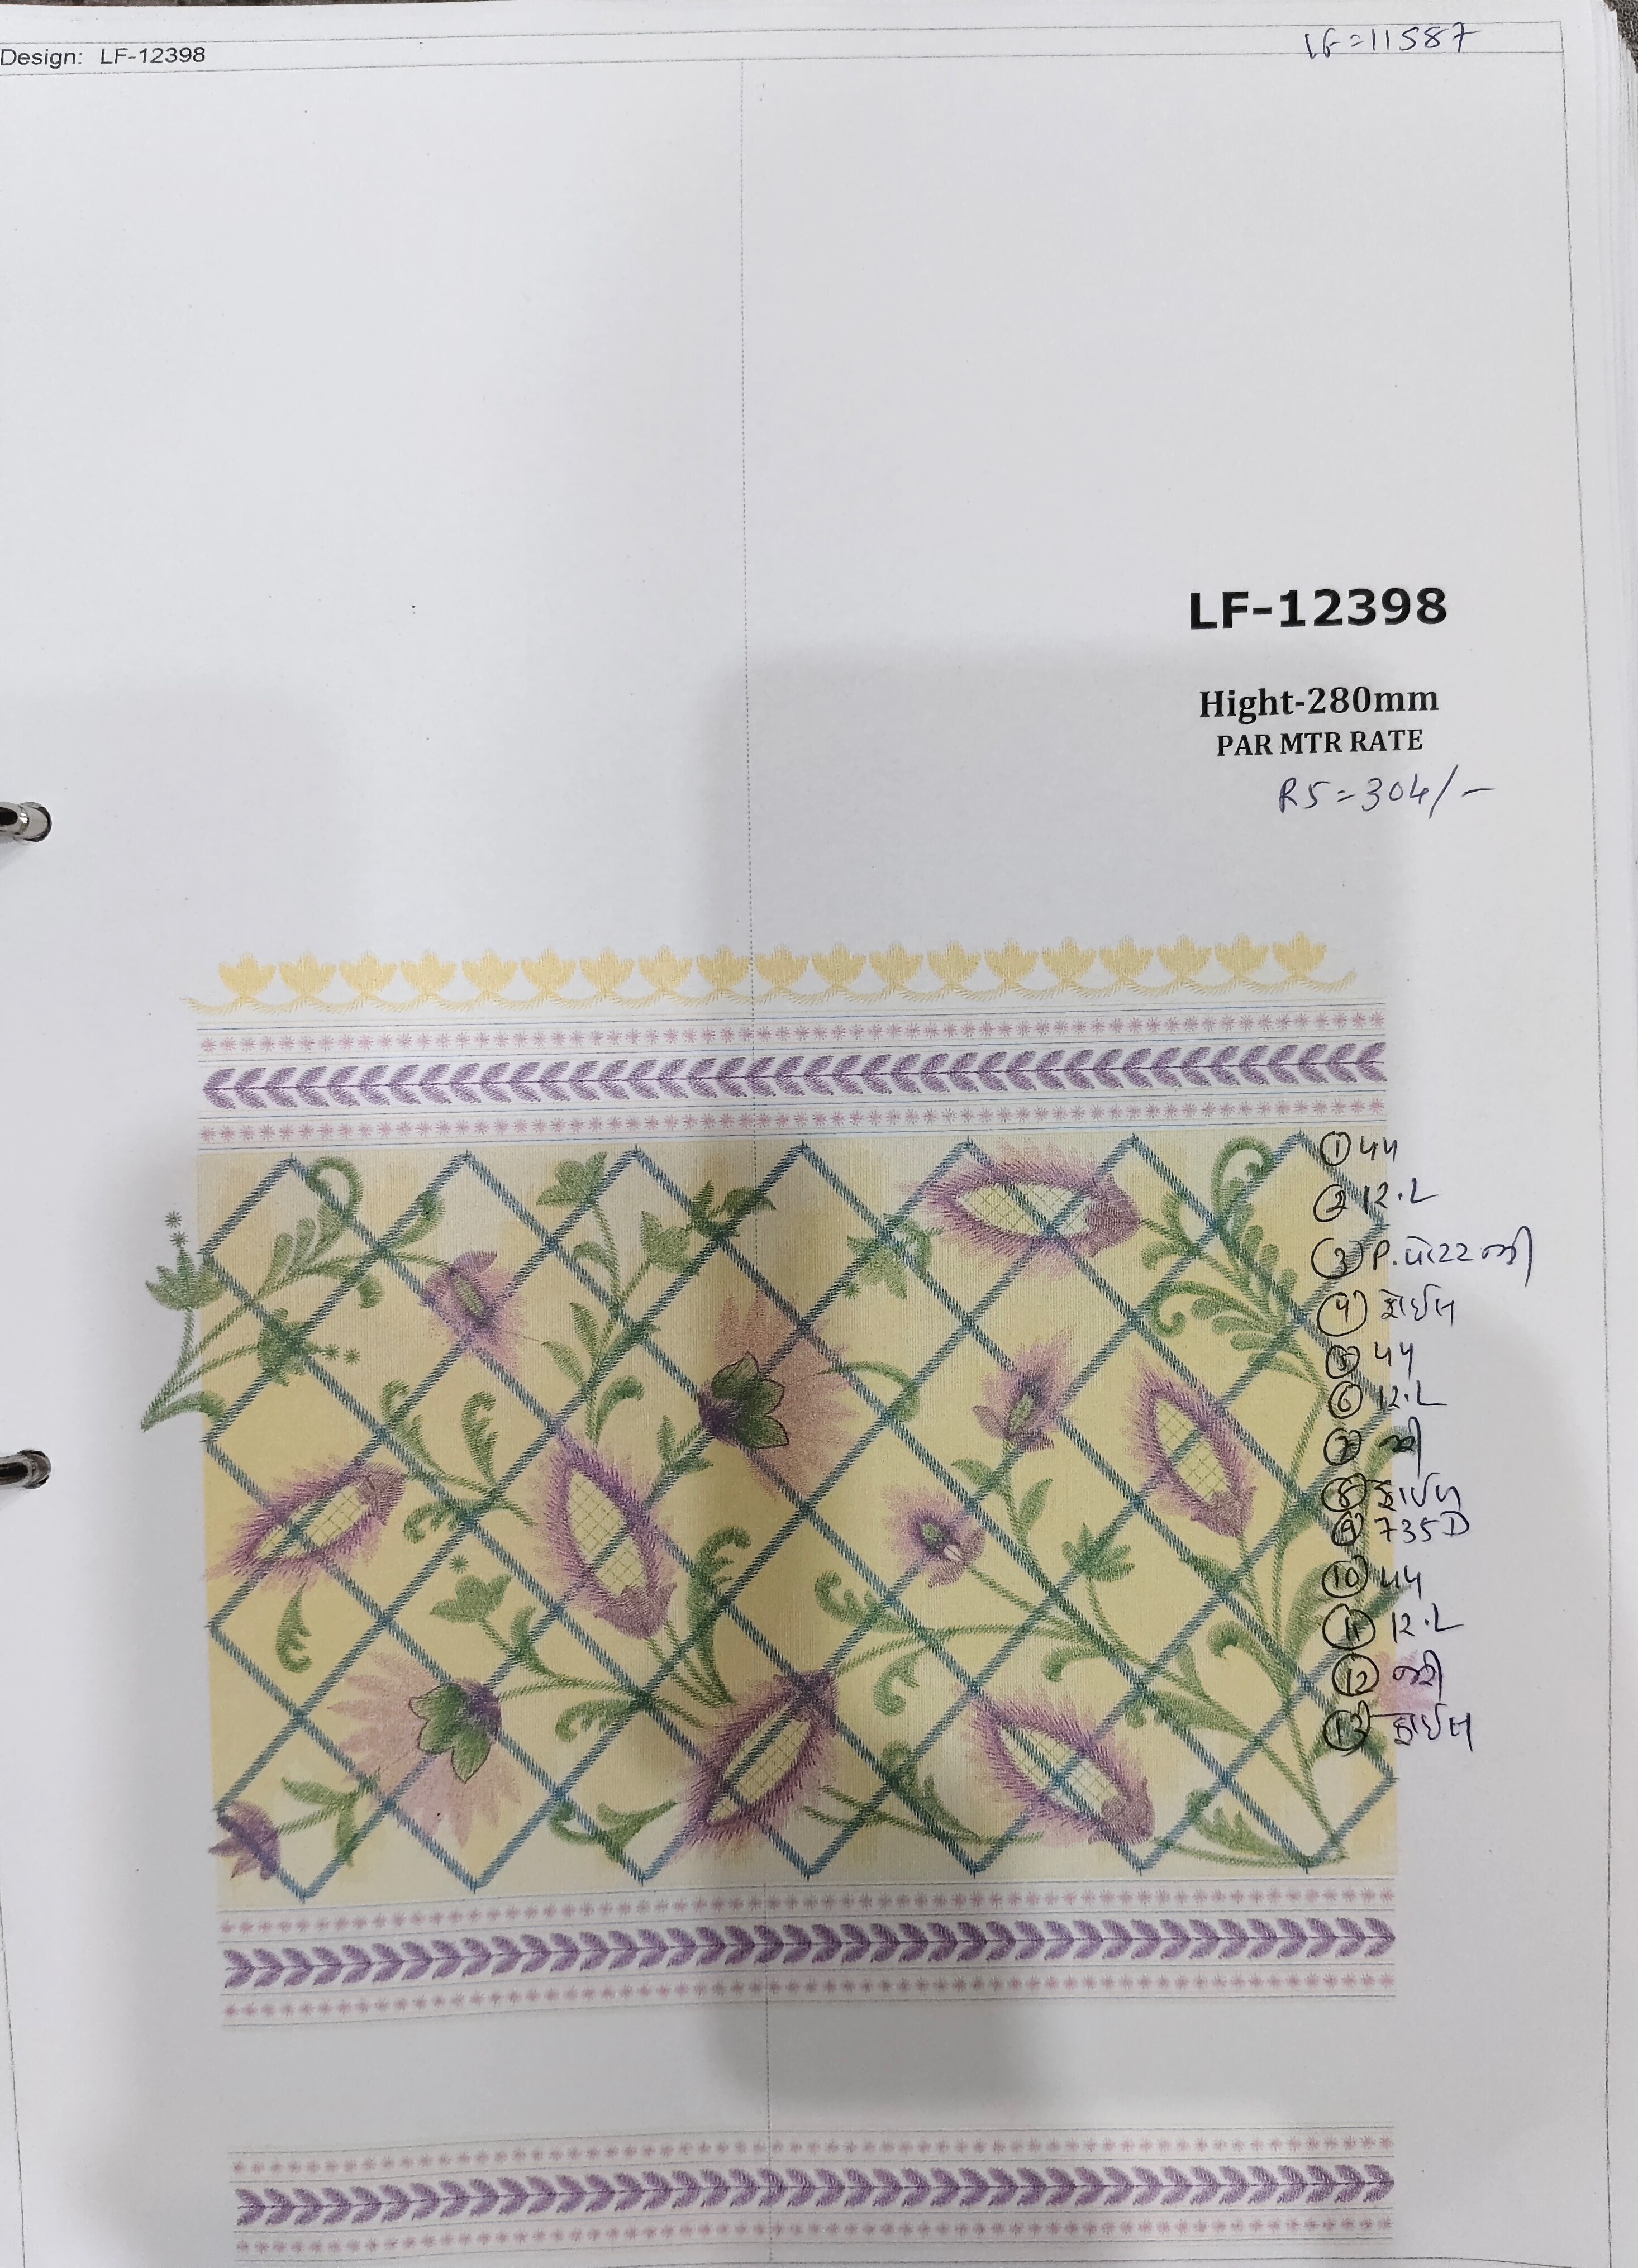 Design: LF-12398
LF=11587
LF-12398
Hight-280mm
PAR MTR RATE
RS=304/-
① 44
② 12.L
③ P.
④
⑤ 44
⑥ 12.L
⑦ જરી
⑧
⑨ 735D
⑩ 44
⑪ 12.L
⑫ જરી
⑬